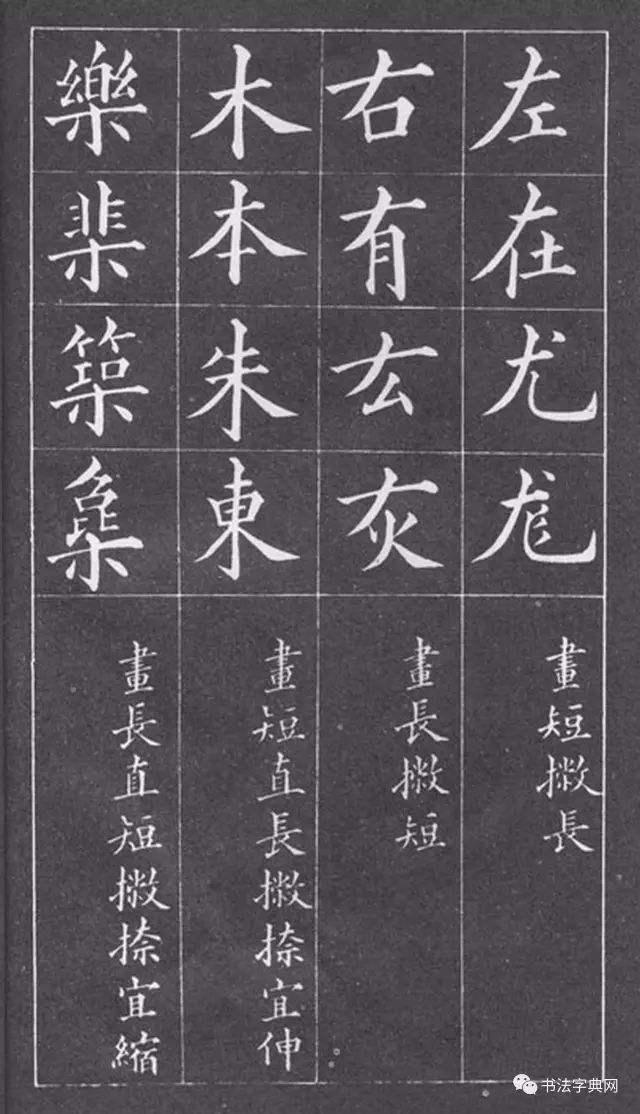 左在尤
畫短撇長
右有厷灰
畫長撇短
木本朱東
畫短直長撇捺宜伸
樂棐
畫長直短撇捺宜縮
书法字典网